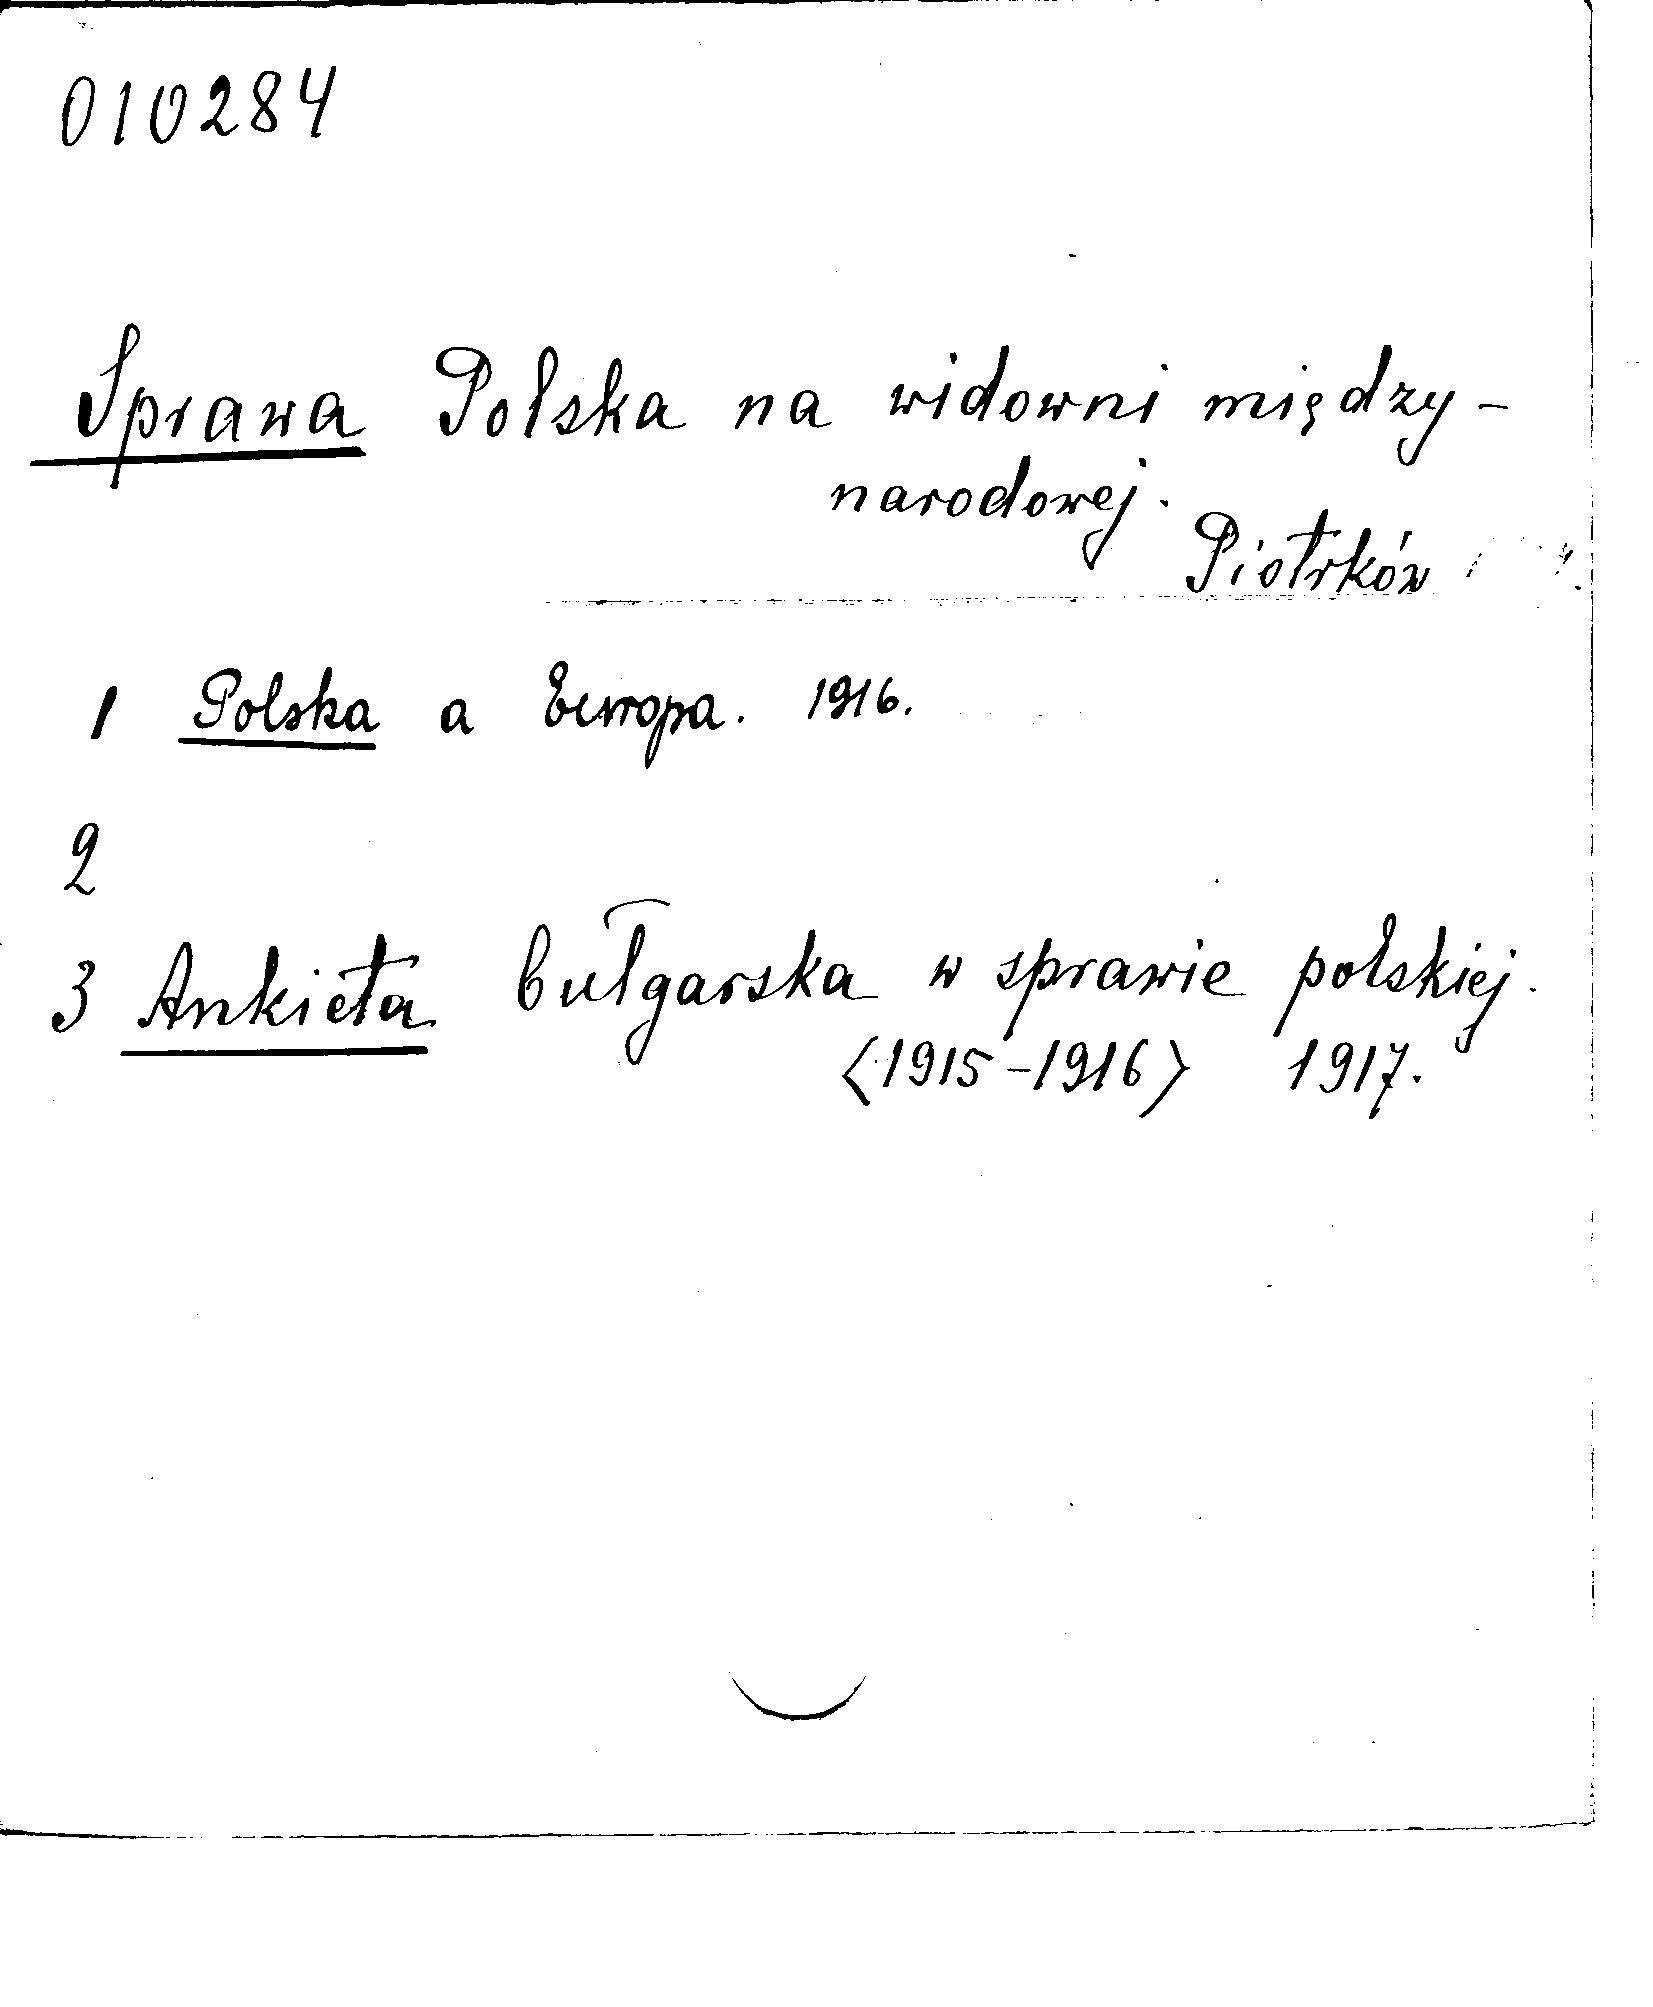 010284
Sprawa Polska na widowni między-
narodowej.
Piotrków
1 Polska a Europa. 1916.
2
3 Ankieta bułgarska w sprawie polskiej.
<1915-1916> 1917.